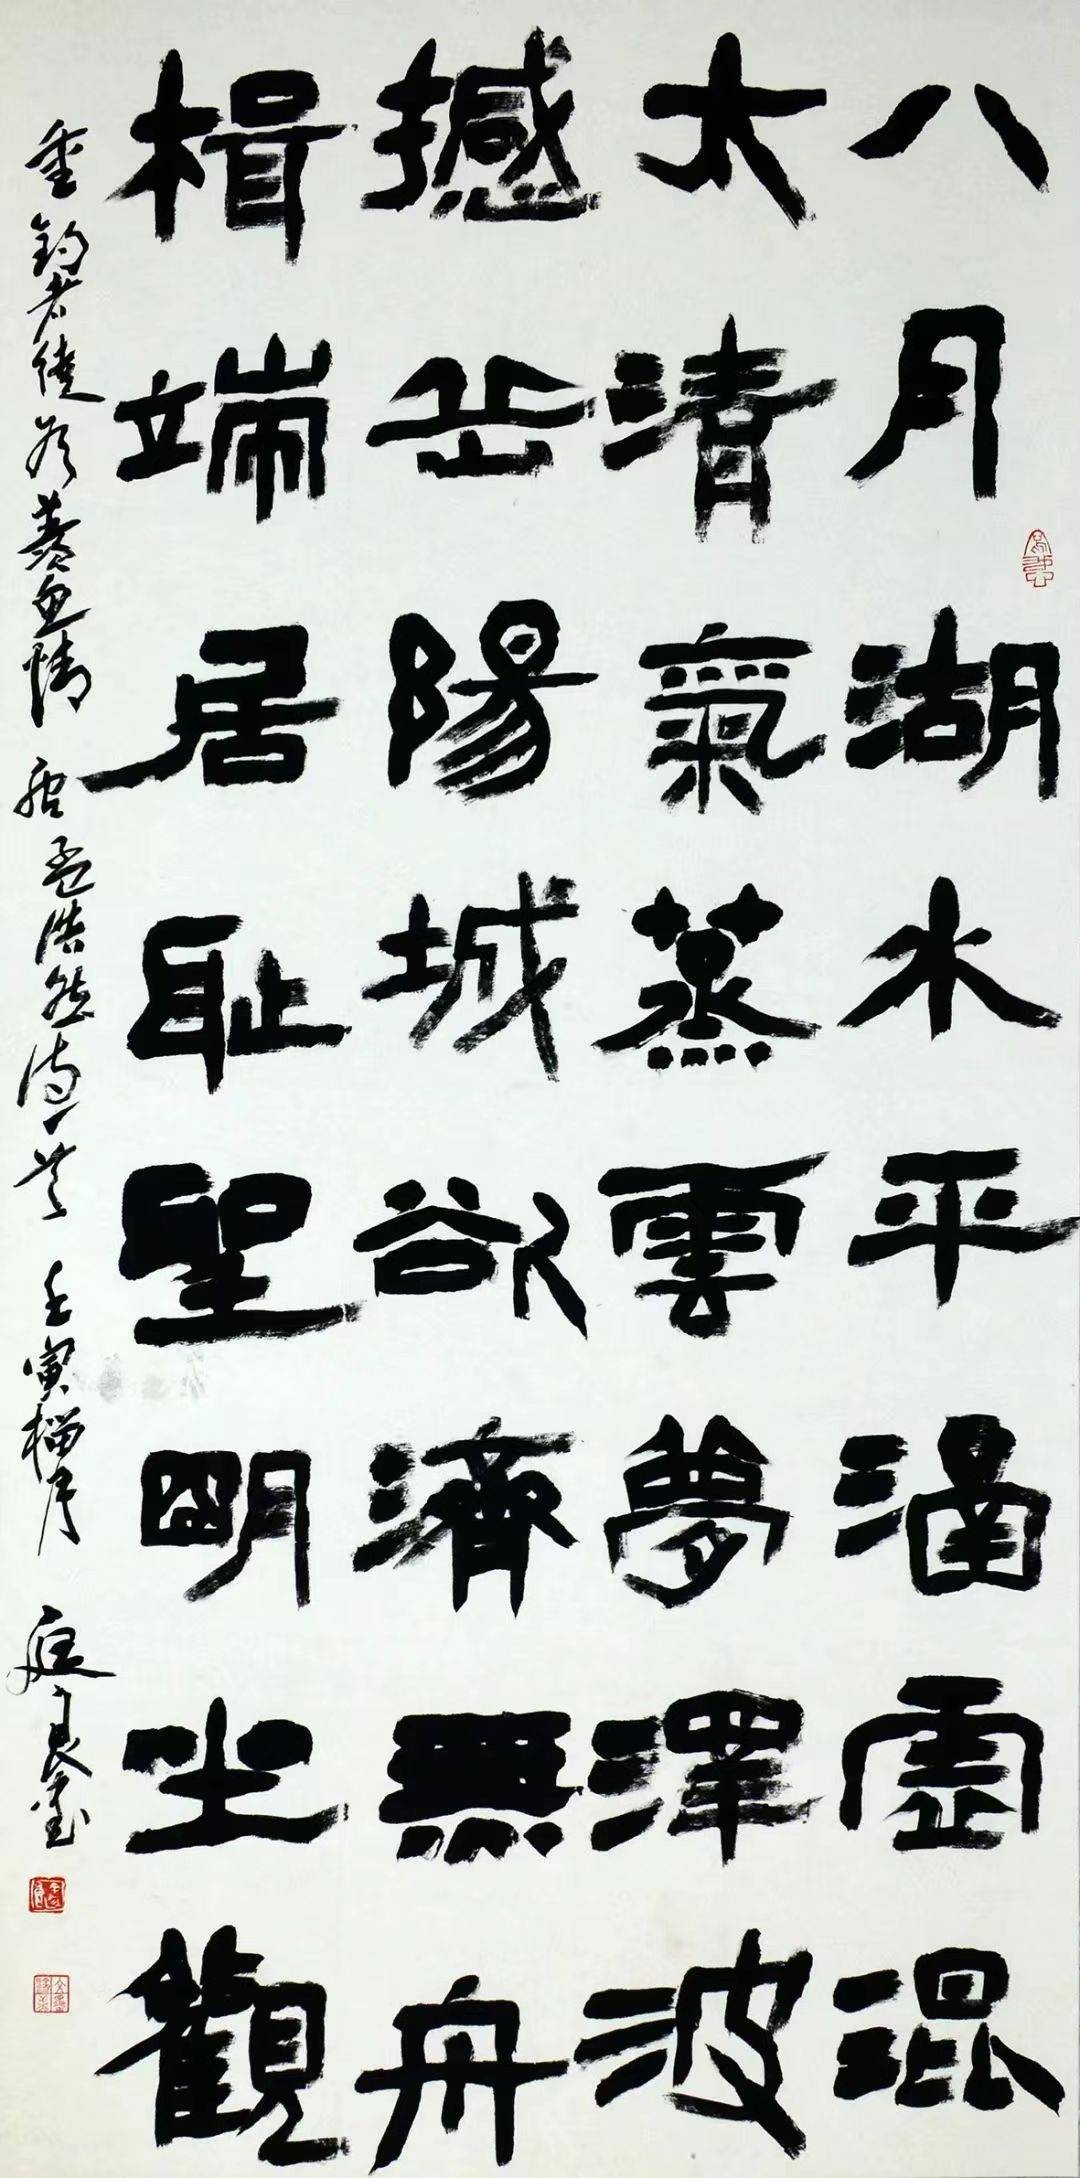 八月湖水平涵虛混
太清氣蒸雲夢澤波
撼岳陽城欲濟無舟
楫端居耻聖明坐觀
垂釣者徒有羨魚情 唐孟浩然詩一首 壬寅榴月 庭良